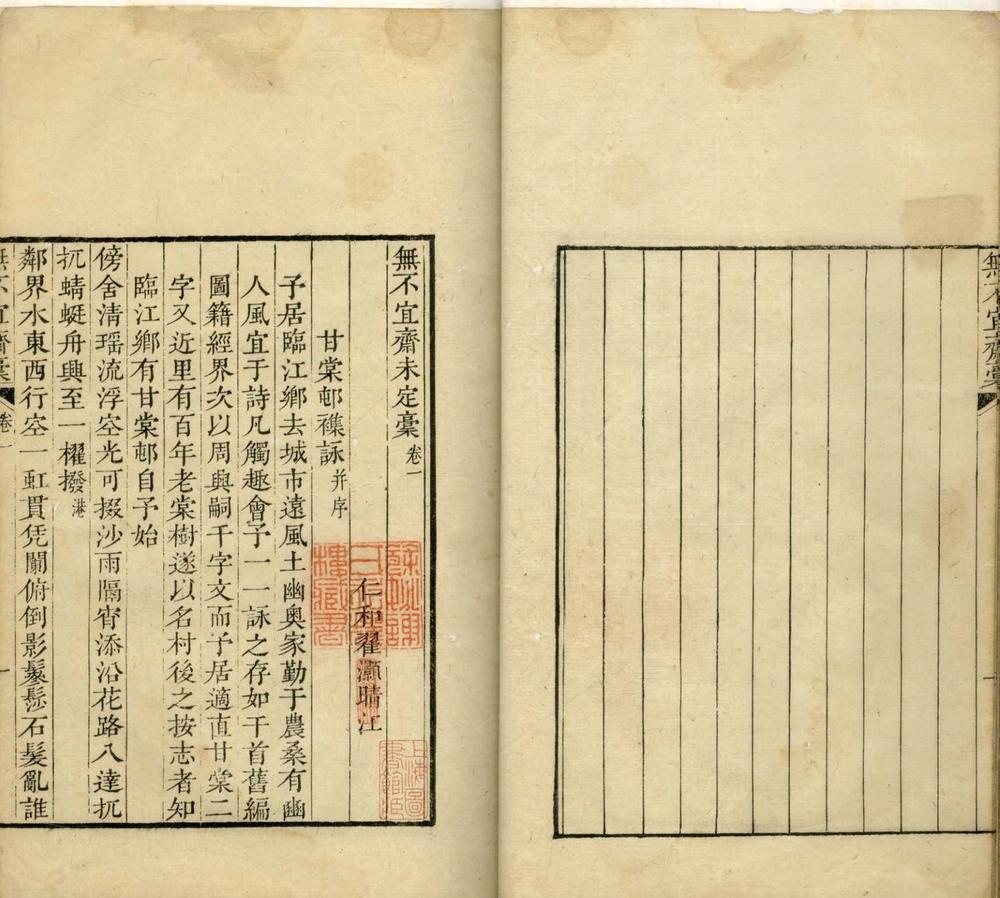 無不宜齋稾
一
無不宜齋未定稾卷一
仁和翟灝晴江
甘棠邨襍詠并序
予居臨江鄉去城市遠風土幽奧家勤于農桑有豳
人風宜于詩凡觸趣會予一一詠之存如干首舊編
圖籍經界次以周興嗣千字文而予居適直甘棠二
字又近里有百年老棠樹遂以名村後之按志者知
臨江鄉有甘棠邨自予始
傍舍淸瑶流浮空光可掇沙雨隔宵添沿花路八達扤
扤蜻蜓舟興至一櫂撥港
鄰界水東西行空一虹貫凭闌俯倒影鬖髿石髮亂誰
無不宜齋稾
卷一
一
餘姚謝
氏永耀
樓藏書
上海圖
書館臧